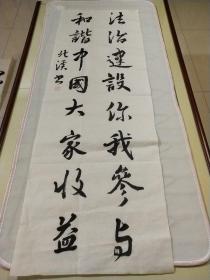 法治建设你我参与
和谐中国大家收益
北溪书